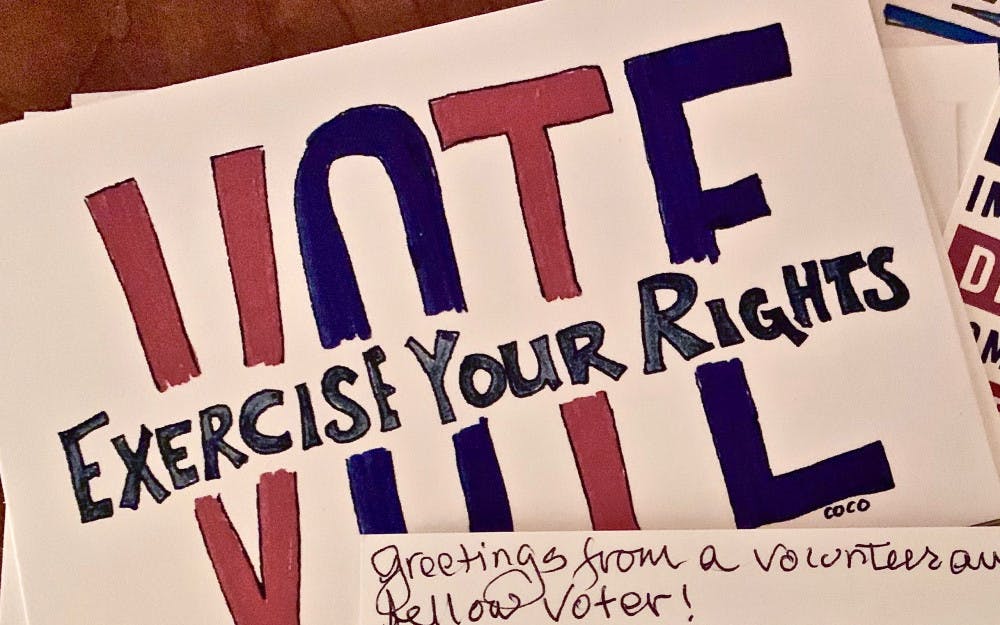 VOTE
EXERCISE YOUR RIGHTS
COCO
Greetings from a volunteer
fellow voter!